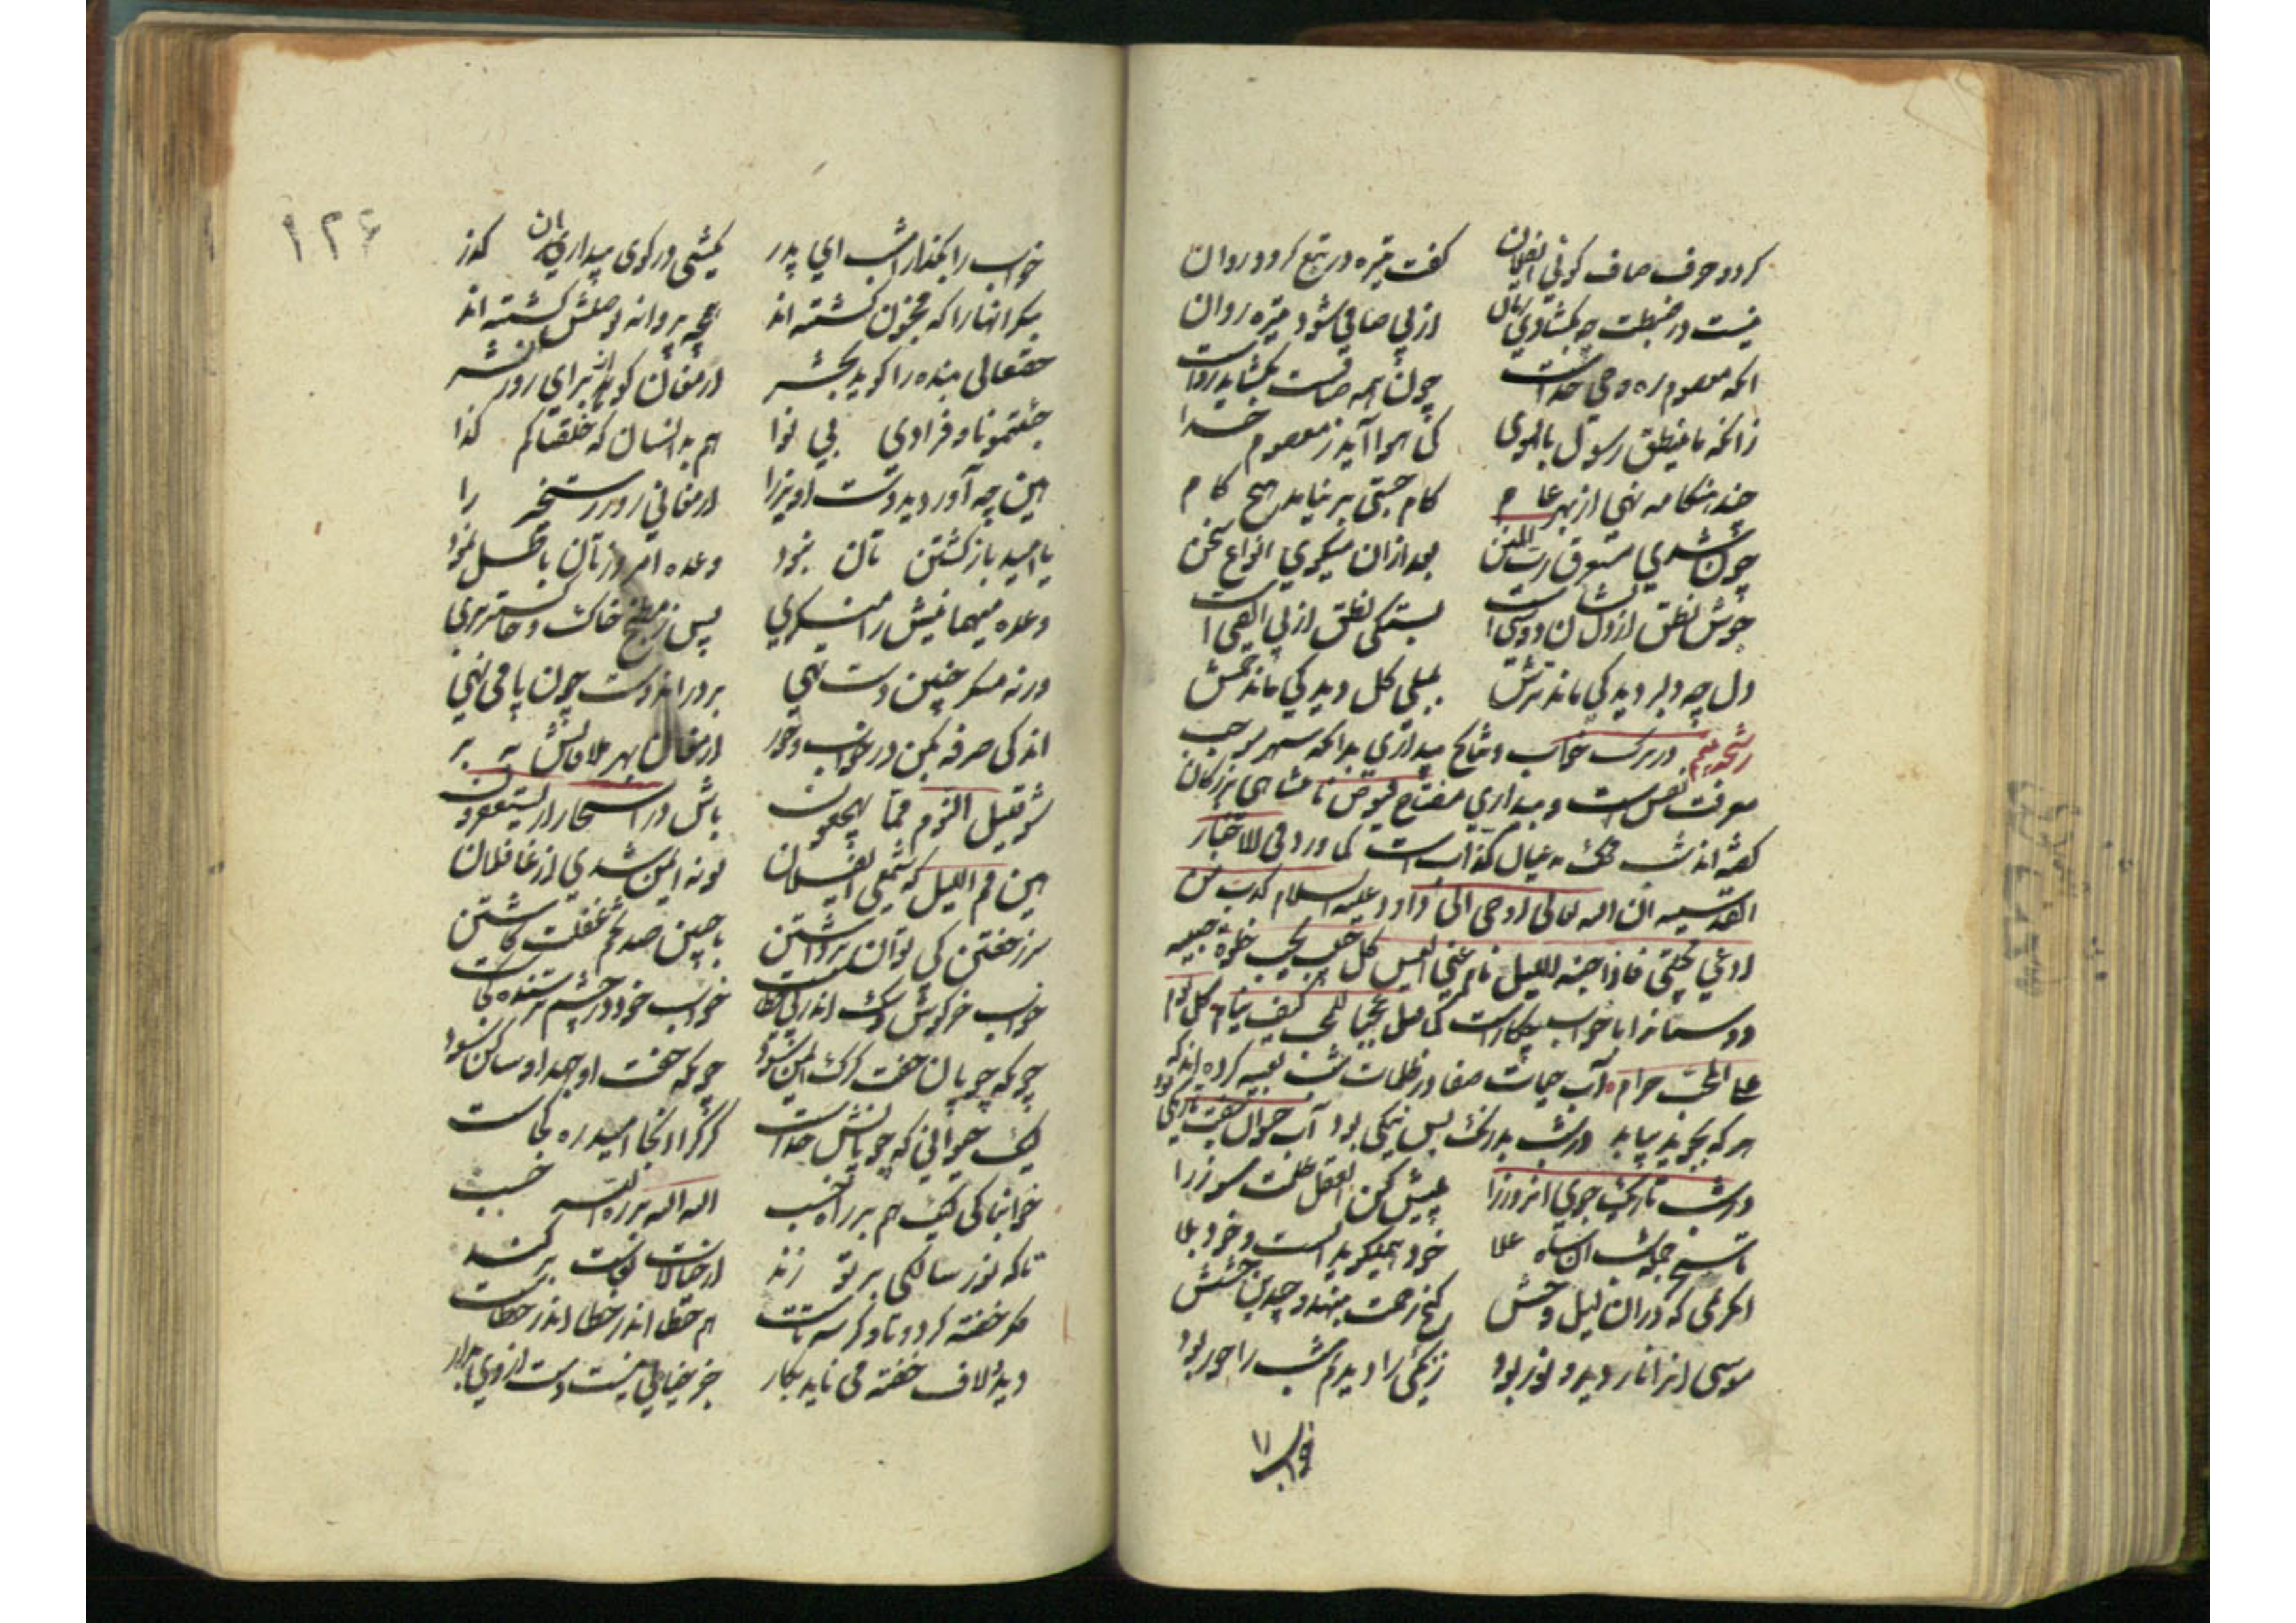 کرود حرف صاف کوئی
کفت تیره در تبع کرود روان
نیست در ضبطت چه بکشادی
از پی صافی شود تیره روان
انکه معصوم ره وحی خداست
چون همه صافست بکشاید رواست
زانکه ما ینطق رسول بالهوی
کی هوا آید ز معصوم خدا
چند هنکامه نهی از بهر عام
کام جستی بر نیاید هیچ کام
چون شدی
بعد ازان میکوی انواع سخن
جوش نطق از دل نشان دوستیست
بستکی نطق از بی الفتی است
دل چه دلبر دید کی ماند ترش
بلبلی کل دید کی ماند خمش
رشحه پنجم در ترک خواب و نتایج بیداری بدانکه سهر موجب
معرفت نفس است و بیداری مفتاح فیوض نامتناهی بزرکان
کفته اند شب محک عیال کذاب است کما ورد فی الاخبار
القدسیه ان الله تعالی اوحی الی داود علیه السلام کذب من
ادعی محبتی فاذا جنه اللیل نام عنی الیس کل حبیب یحب خلوة حبیبه
دوستانرا با خواب چکارست کما قیل عجبا للمحب کیف ینام کل نوم
علی المحب حرام آب حیات صفا در ظلمات شب تعبیه کرده اند که
هر که بجوید بیابد در شب بدرنک بس نیکی بود آب حیوان جفت تاریکی بود
در شب تاریک جوی انروز را
پیش کن ان عقل ظلمت سوز را
خود همیکوید الست و خود بلی
موسی انرا نار دید و نور بود
زنکئی را دیدم شب را حور بود
خواب را
۱۲۶
خواب را بکذار امشب ای پدر
یکشبی در کوی بیداران کذر
بنکر انها را که مجنون کشته اند
همچه پروانه بوصلش کشته اند
حقتعالی بنده را کوید بحشر
ارمغان کو از برای روز نشر
جئتمونا و فرادی بی نوا
هم بدانسان که خلقناکم کذا
هین چه آوردید دست اویز را
ارمغانی روز رستخیز را
یا امید باز کشتن تان نبود
وعده امروز تان باطل نمود
وعده میهمانیش را منکری
پس ز مطبخ خاک و خاکستر بری
ورنه منکر چنین دست تهی
بر در اندوست چون پا می نهی
اندکی صرفه بکن در خواب و خور
ارمغان بهر ملاقاتش به بر
شو قلیل النوم مما یهجعون
باش در اسحار از یستغفرون
هین قم اللیل که شمعی
تو نه ایمن شدی از غافلان
سر ز خفتن کی توان برداشتن
با چنین صد تخم غفلت کاشتن
خواب خرکوش و سک اندر پی خطاست
خواب خود در چشم ترسنده کجاست
چونکه چوپان خفت کرک ایمن شود
چونکه خفت او جهد او ساکن شود
لیک حیوانی که چوپانش خداست
کرک را انجا امید ره کجاست
خوابناکی لیک هم بر راه خسب
الله الله بر ره الله خسب
تا که نور سالکی بر تو زند
از خیالات نعاست بر کند
کر خفته کر دو تا و کر سه تاست
هم خطا اندر خطا اندر خطاست
دید و لاف خفته می ناید بکار
جز خیالی نیست دست از وی بدار